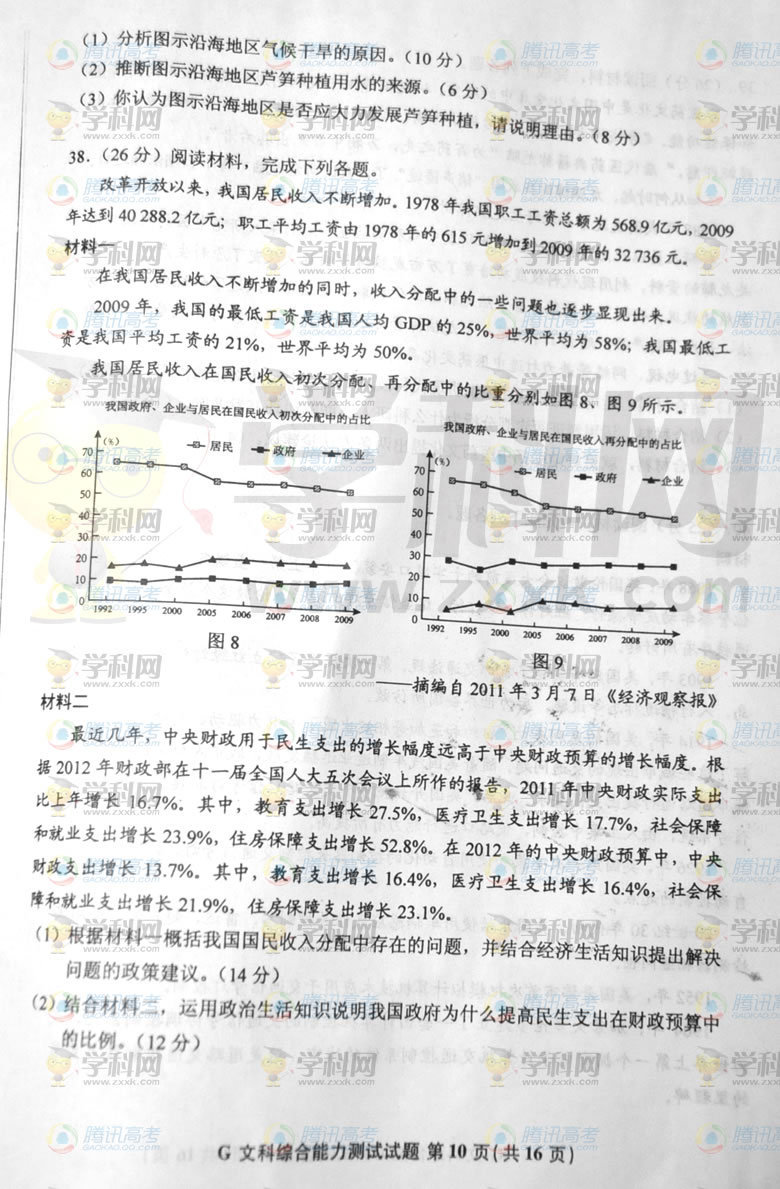 (1)分析图示沿海地区气候干旱的原因。(10 分)
(2)推断图示沿海地区芦笋种植用水的来源。(6 分)
(3)你认为图示沿海地区是否应大力发展芦笋种植，请说明理由。(8 分)
38.(26 分)阅读材料，完成下列各题。
改革开放以来，我国居民收入不断增加。1978 年我国职工工资总额为 568.9 亿元，2009
年达到 40 288.2 亿元；职工平均工资由 1978 年的 615 元增加到 2009 年的 32 736 元。
材料一
在我国居民收入不断增加的同时，收入分配中的一些问题也逐步显现出来。
2009 年，我国的最低工资是我国人均 GDP 的 25%，世界平均为 58%；我国最低工
资是我国平均工资的 21%，世界平均为 50%。
我国居民收入在国民收入初次分配、再分配中的比重分别如图 8、图 9 所示。
我国政府、企业与居民在国民收入初次分配中的占比
(%)
居民 政府 企业
70
60
50
40
30
20
10
0
1992 1995 2000 2005 2006 2007 2008 2009
图 8
我国政府、企业与居民在国民收入再分配中的占比
(%)
居民 政府 企业
70
60
50
40
30
20
10
0
1992 1995 2000 2005 2006 2007 2008 2009
图 9
——摘编自 2011 年 3 月 7 日《经济观察报》
材料二
最近几年，中央财政用于民生支出的增长幅度远高于中央财政预算的增长幅度。根
据 2012 年财政部在十一届全国人大五次会议上所作的报告，2011 年中央财政实际支出
比上年增长 16.7%。其中，教育支出增长 27.5%，医疗卫生支出增长 17.7%，社会保障
和就业支出增长 23.9%，住房保障支出增长 52.8%。在 2012 年的中央财政预算中，中央
财政支出增长 13.7%。其中，教育支出增长 16.4%，医疗卫生支出增长 16.4%，社会保
障和就业支出增长 21.9%，住房保障支出增长 23.1%。
(1)根据材料一概括我国国民收入分配中存在的问题，并结合经济生活知识提出解决
问题的政策建议。(14 分)
(2)结合材料二，运用政治生活知识说明我国政府为什么提高民生支出在财政预算中
的比例。(12 分)
G 文科综合能力测试试题 第 10 页(共 16 页)
学科网
www.zxxk.com
腾讯高考
GAOKAO.QQ.COM